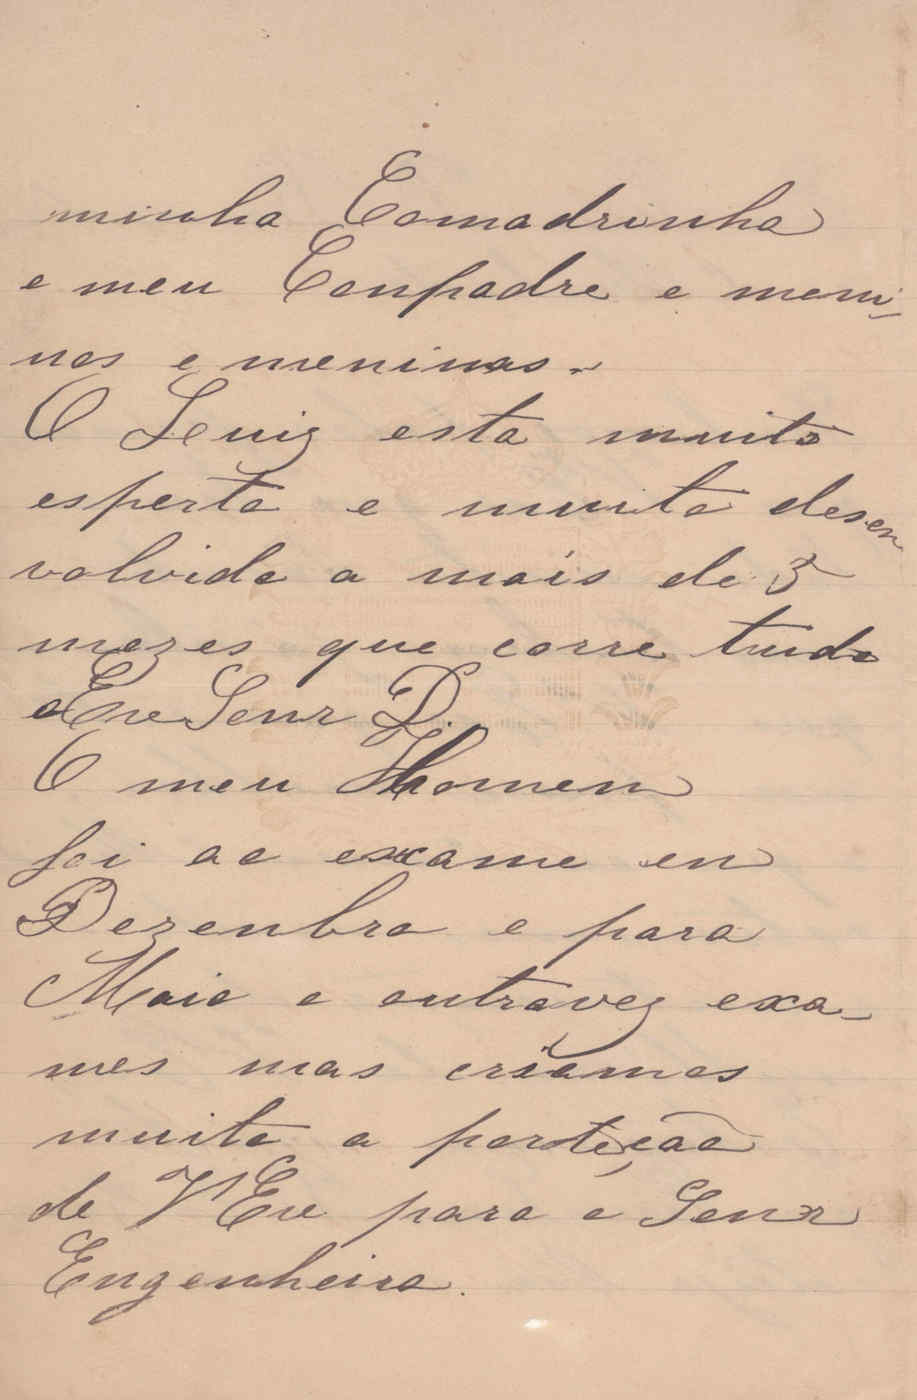 minha Comadrinha
e meu Conpadre e meni-
nos e meninas.
O Leuiz esta muito
esperto e muito desen
volvido a mais de 3
mezes que corre tudo
Exe Senr D.
O meu Homen
foi ao exame en
Dezenbro e para
Maio a outravez exa-
mes mas criamos
muito a porteção
de V Exe para o Senr
Engenheiro.